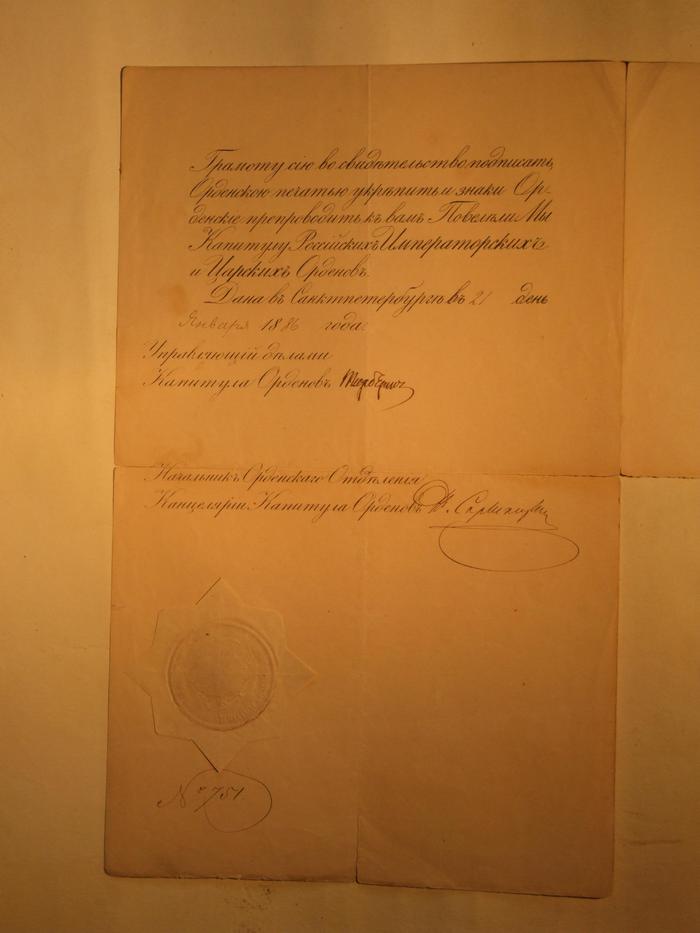 Грамоту сію во свидѣтельство подписать,
Орденскою печатью укрѣпить и знаки Ор-
денскіе препроводить къ вамъ Повелѣли Мы
Капитулу Россійскихъ Императорскихъ
и Царскихъ Орденовъ.
Дана въ Санктпетербургѣ въ 21 день
Января 1886 года.
Управляющій дѣлами
Капитула Орденовъ
Начальникъ Орденскаго Отдѣленія
Канцеляріи Капитула Орденовъ
№ 751